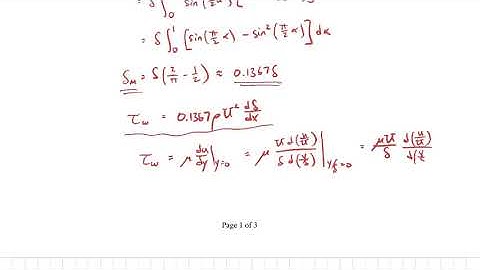 = δ∫₀¹ sin(π/2 α) [
= δ∫₀¹ [sin(π/2 α) − sin²(π/2 α)] dα
δ_M = δ(2/π − 1/2) ≈ 0.1367δ
τ_w = 0.1367 ρU² dδ/dx
τ_w = μ du/dy|_{y=0} = μ U d(u/U) / δ d(y/δ) |_{y/δ=0} = μU/δ d(u/U) / d(y/δ
Page 1 of 3